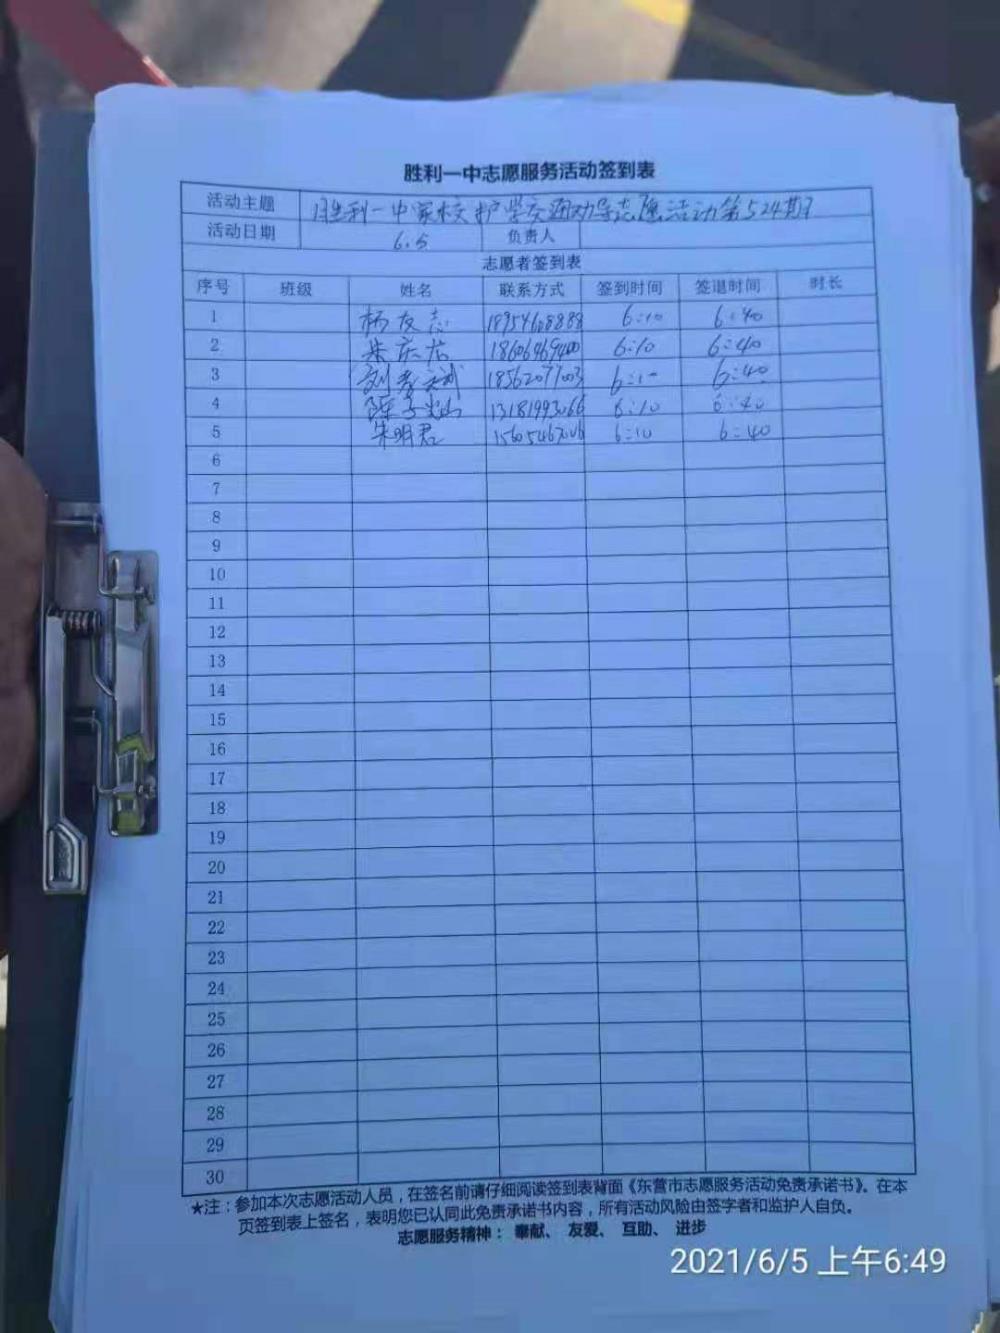 胜利一中志愿服务活动签到表
活动主题 胜利一中家校护学交通劝导志愿活动第524期
活动日期 6.5 负责人
志愿者签到表
序号 班级 姓名 联系方式 签到时间 签退时间 时长
1 杨友志 18954608888 6:10 6:40
2 朱庆 18606469400 6:10 6:40
3 刘 18562077003 6:10 6:40
4 陈 13181993066 6:10 6:40
5 朱明君 15605467006 6:10 6:40
6
7
8
9
10
11
12
13
14
15
16
17
18
19
20
21
22
23
24
25
26
27
28
29
30
★注：参加本次志愿活动人员，在签名前请仔细阅读签到表背面《东营市志愿服务活动免责承诺书》。在本
页签到表上签名，表明您已认同此免责承诺书内容，所有活动风险由签字者和监护人自负。
志愿服务精神： 奉献、 友爱、 互助、 进步
2021/6/5 上午6:49